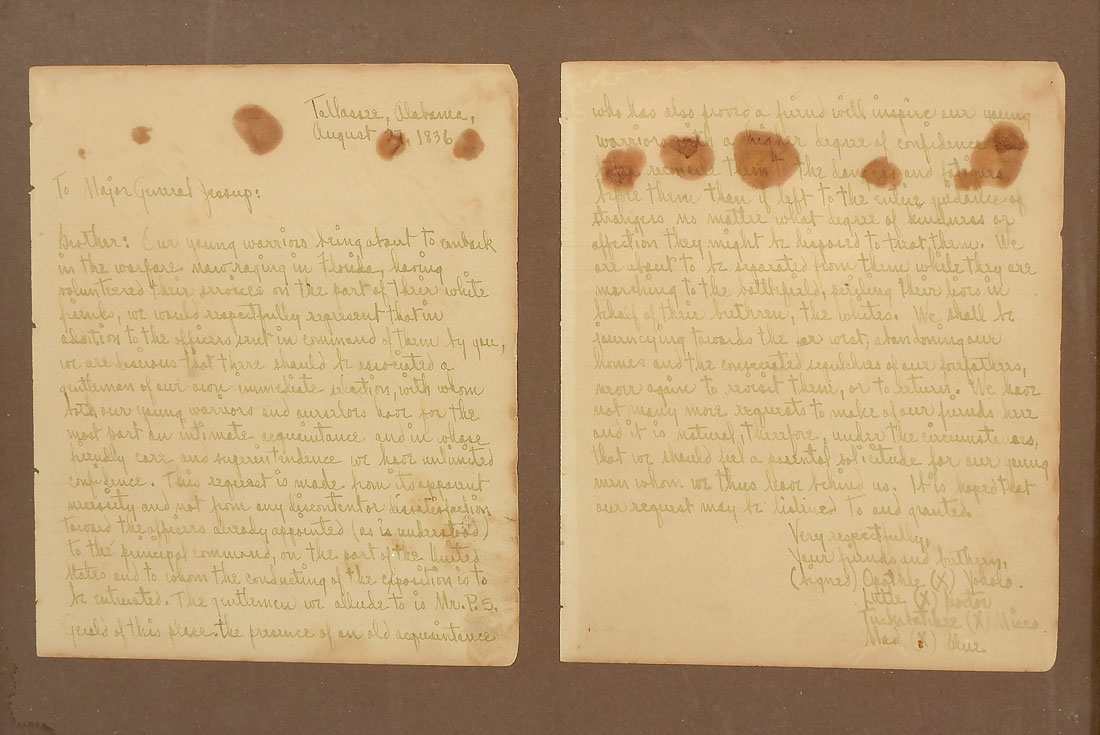 Tallassee, Alabama,
August 27, 1836
To Major General Jessup:
Brother: Our young warriors being about to embark
in the warfare now raging in Florida, having
volunteered their services on the part of their white
friends, we would respectfully represent that in
addition to the officers sent in command of them by you,
we are desirous that there should be associated a
gentleman of our own immediate selection, with whom
both our young warriors and ourselves have for the
most part an intimate acquaintance and in whose
friendly care and superintendence we have unlimited
confidence. This request is made from its apparent
necessity and not from any discontent or dissatisfaction
toward the officers already appointed (as is understood)
to the principal command, on the part of the United
States and to whom the conducting of the expedition is to
be entrusted. The gentleman we allude to is Mr. P. S.
Gerald of this place. the presence of an old acquaintance
who has also proved a friend will inspire our young
warriors with a higher degree of confidence
reconcile them to the dangers and fatigues
before them than if left to the entire guidance of
strangers no matter what degree of kindness or
affection they might be disposed to treat them. We
are about to be separated from them while they are
marching to the battlefield, periling their lives in
behalf of their brethren, the whites. We shall be
journeying towards the far west, abandoning our
homes and the consecrated sepulchres of our forefathers,
never again to revisit them, or to return. We have
not many more requests to make of our friends here
and it is natural, therefore, under the circumstances,
that we should feel a parental solicitude for our young
men whom we thus leave behind us. It is hoped that
our request may be listened to and granted.
Very respectfully,
Your friends and brethren,
(Signed) Opothle (X) Yoholo.
Little (X) Doctor
Tuckabatchee (X) Micco
Mad (X) Blue